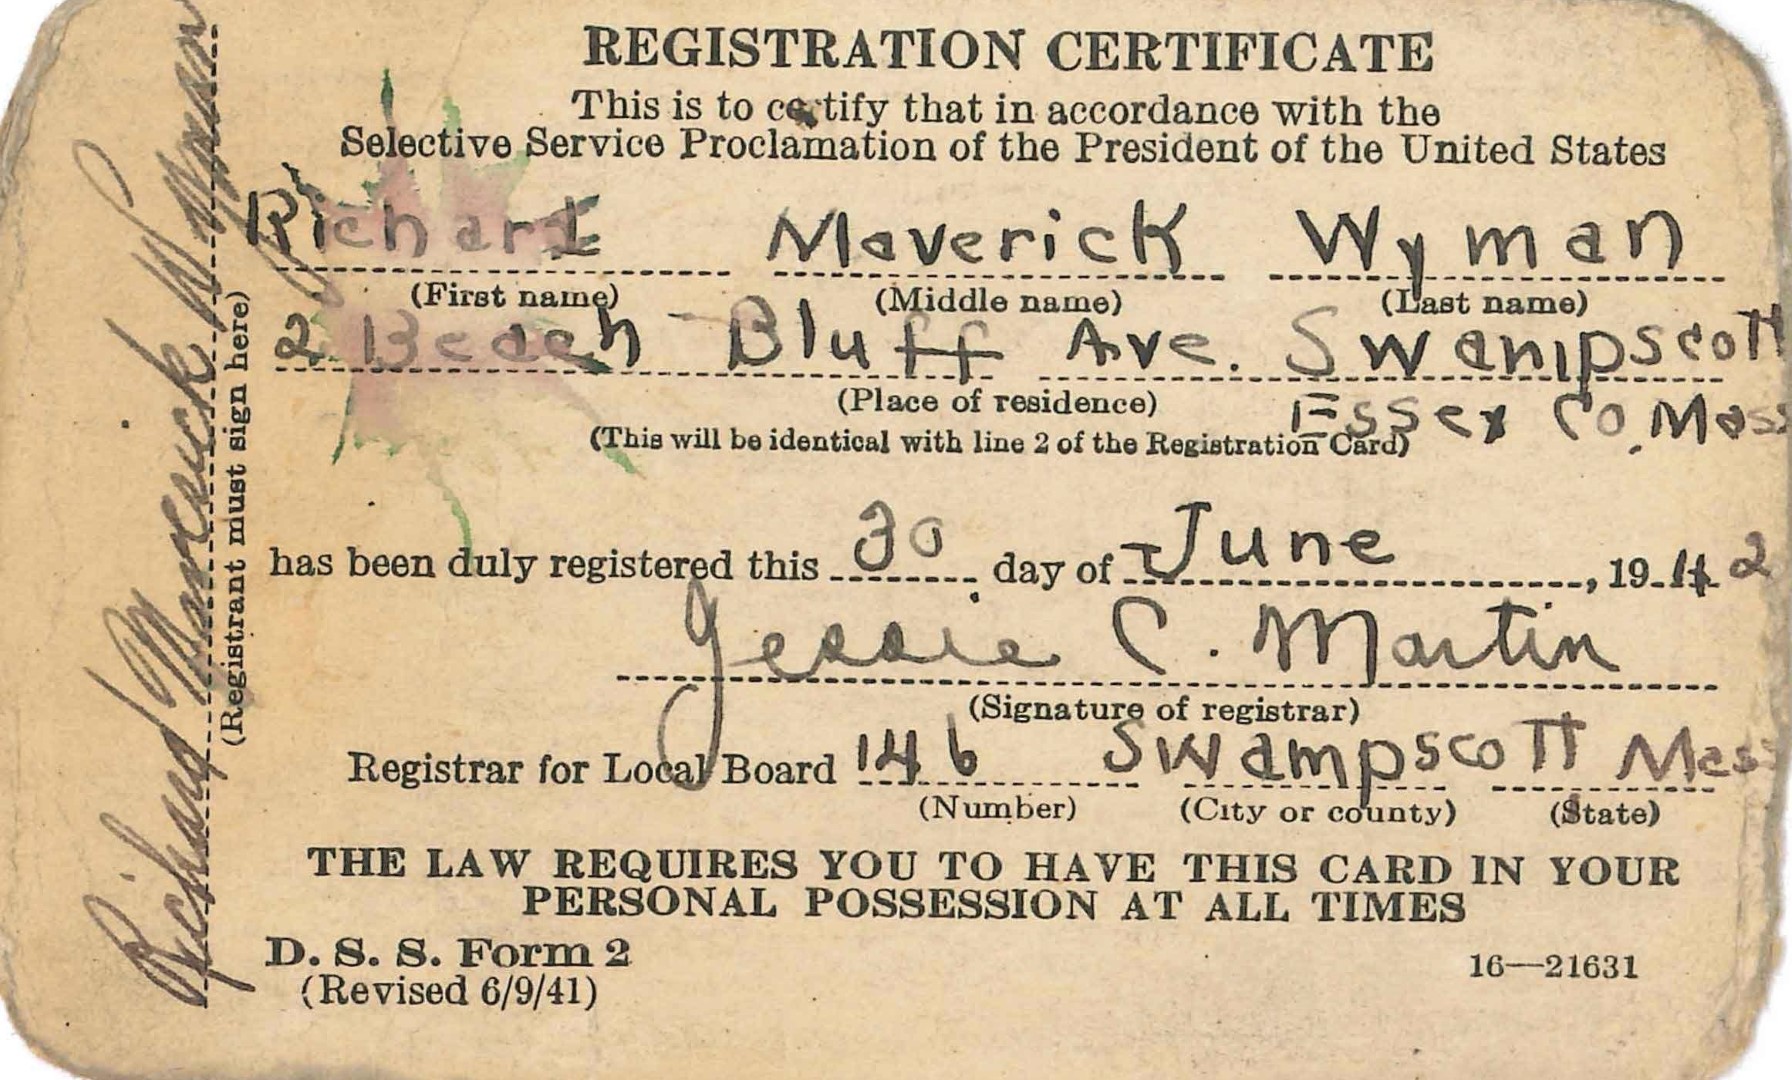 REGISTRATION CERTIFICATE
This is to certify that in accordance with the
Selective Service Proclamation of the President of the United States
Richard Maverick Wyman
(First name) (Middle name) (Last name)
2 Beach Bluff Ave. Swampscott
(Place of residence)
Essex Co. Mass
(This will be identical with line 2 of the Registration Card)
has been duly registered this 30 day of June, 1942
Jessie C. Martin
(Signature of registrar)
Registrar for Local Board 146 Swampscott Mass
(Number) (City or county) (State)
THE LAW REQUIRES YOU TO HAVE THIS CARD IN YOUR
PERSONAL POSSESSION AT ALL TIMES
D. S. S. Form 2
(Revised 6/9/41)
16—21631
Richard Maverick Wyman
(Registrant must sign here)